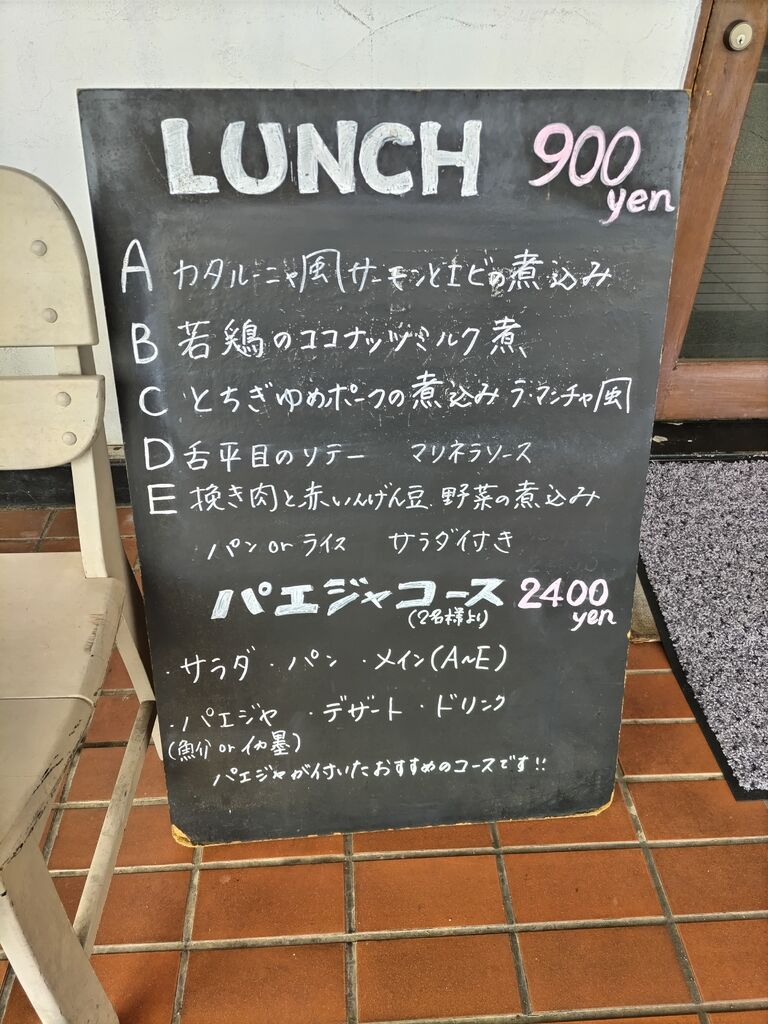 LUNCH 900 yen
A カタルーニャ風サーモンとエビの煮込み
B 若鶏のココナッツミルク煮
C とちぎゆめポークの煮込み ラ・マンチャ風
D 舌平目のソテー マリネラソース
E 挽き肉と赤いんげん豆 野菜の煮込み
パン or ライス サラダ付き
パエジャコース 2400 yen
(2名様より)
・サラダ ・パン ・メイン(A~E)
・パエジャ ・デザート ・ドリンク
(魚介 or イカ墨)
パエジャが付いたおすすめのコースです!!